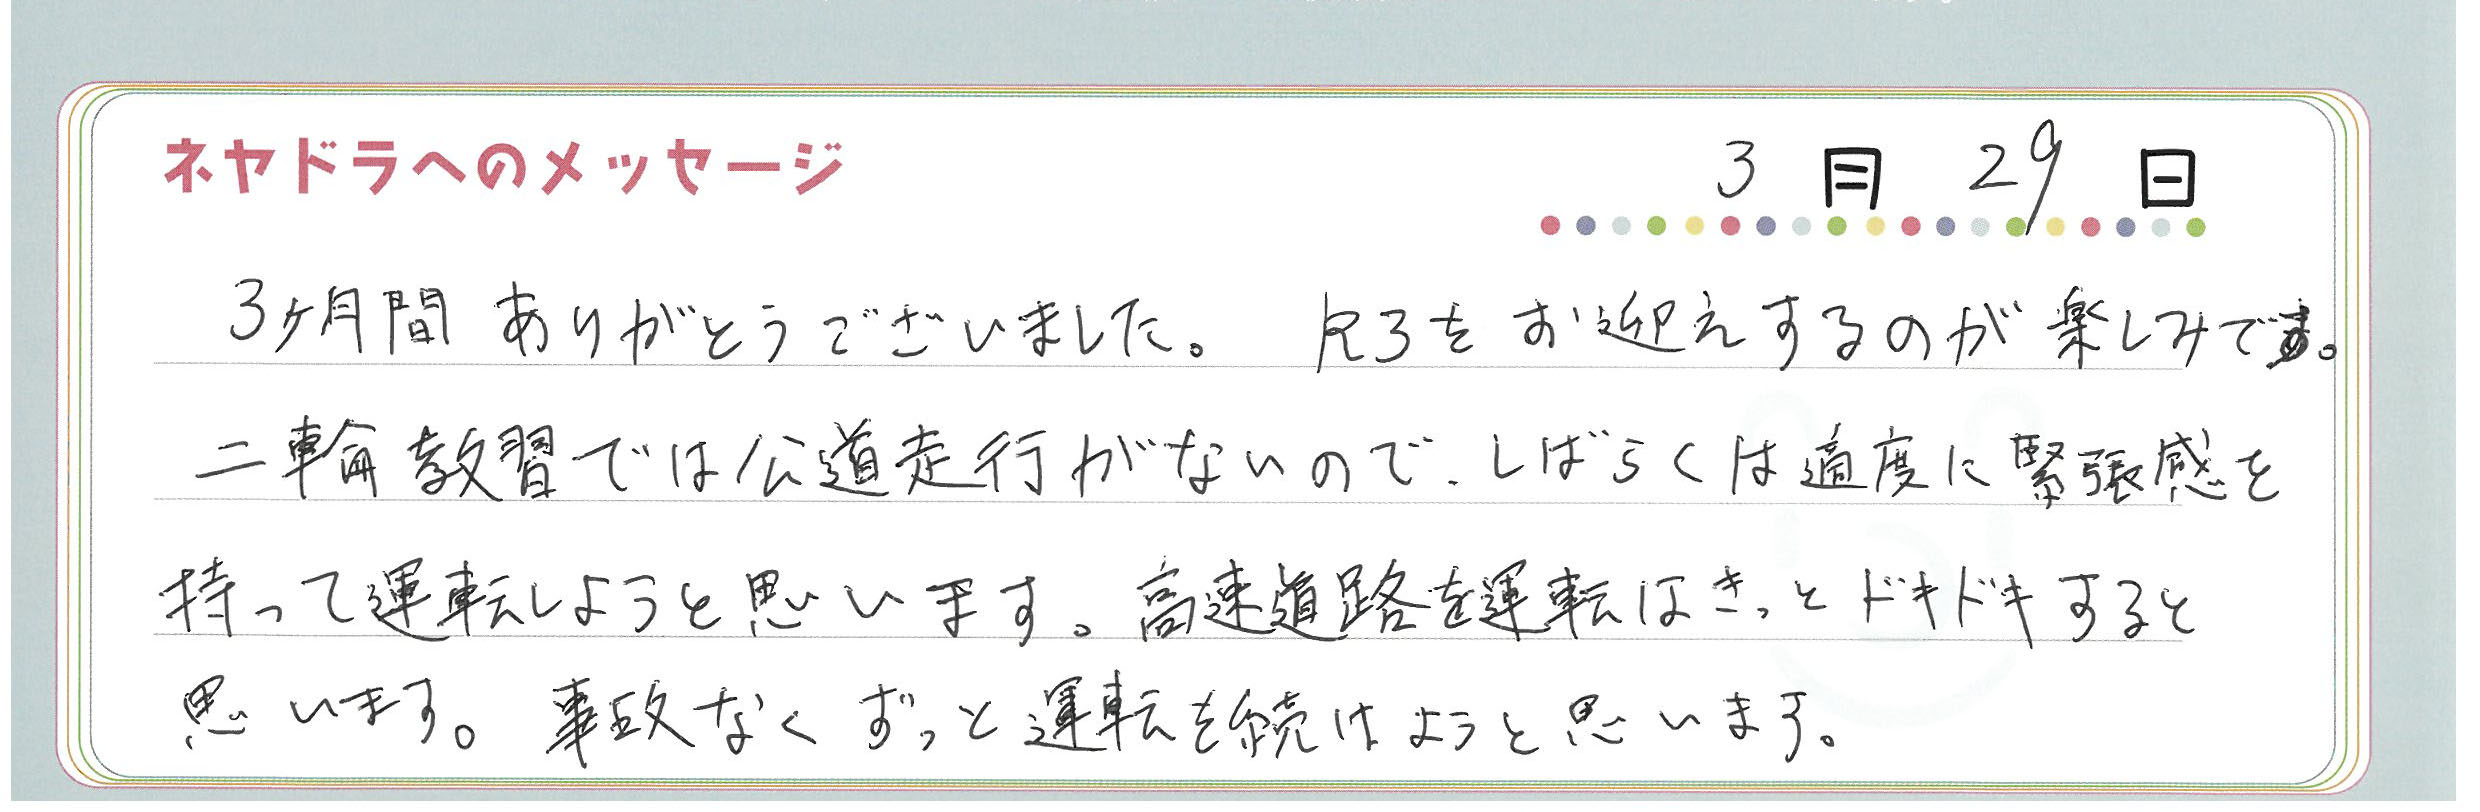 ネヤドラへのメッセージ
3月29日
3ヶ月間ありがとうございました。 R3をお迎えするのが楽しみです。
二輪教習では公道走行がないので、しばらくは適度に緊張感を
持って運転しようと思います。高速道路を運転はきっとドキドキすると
思います。事故なくずっと運転を続けようと思います。